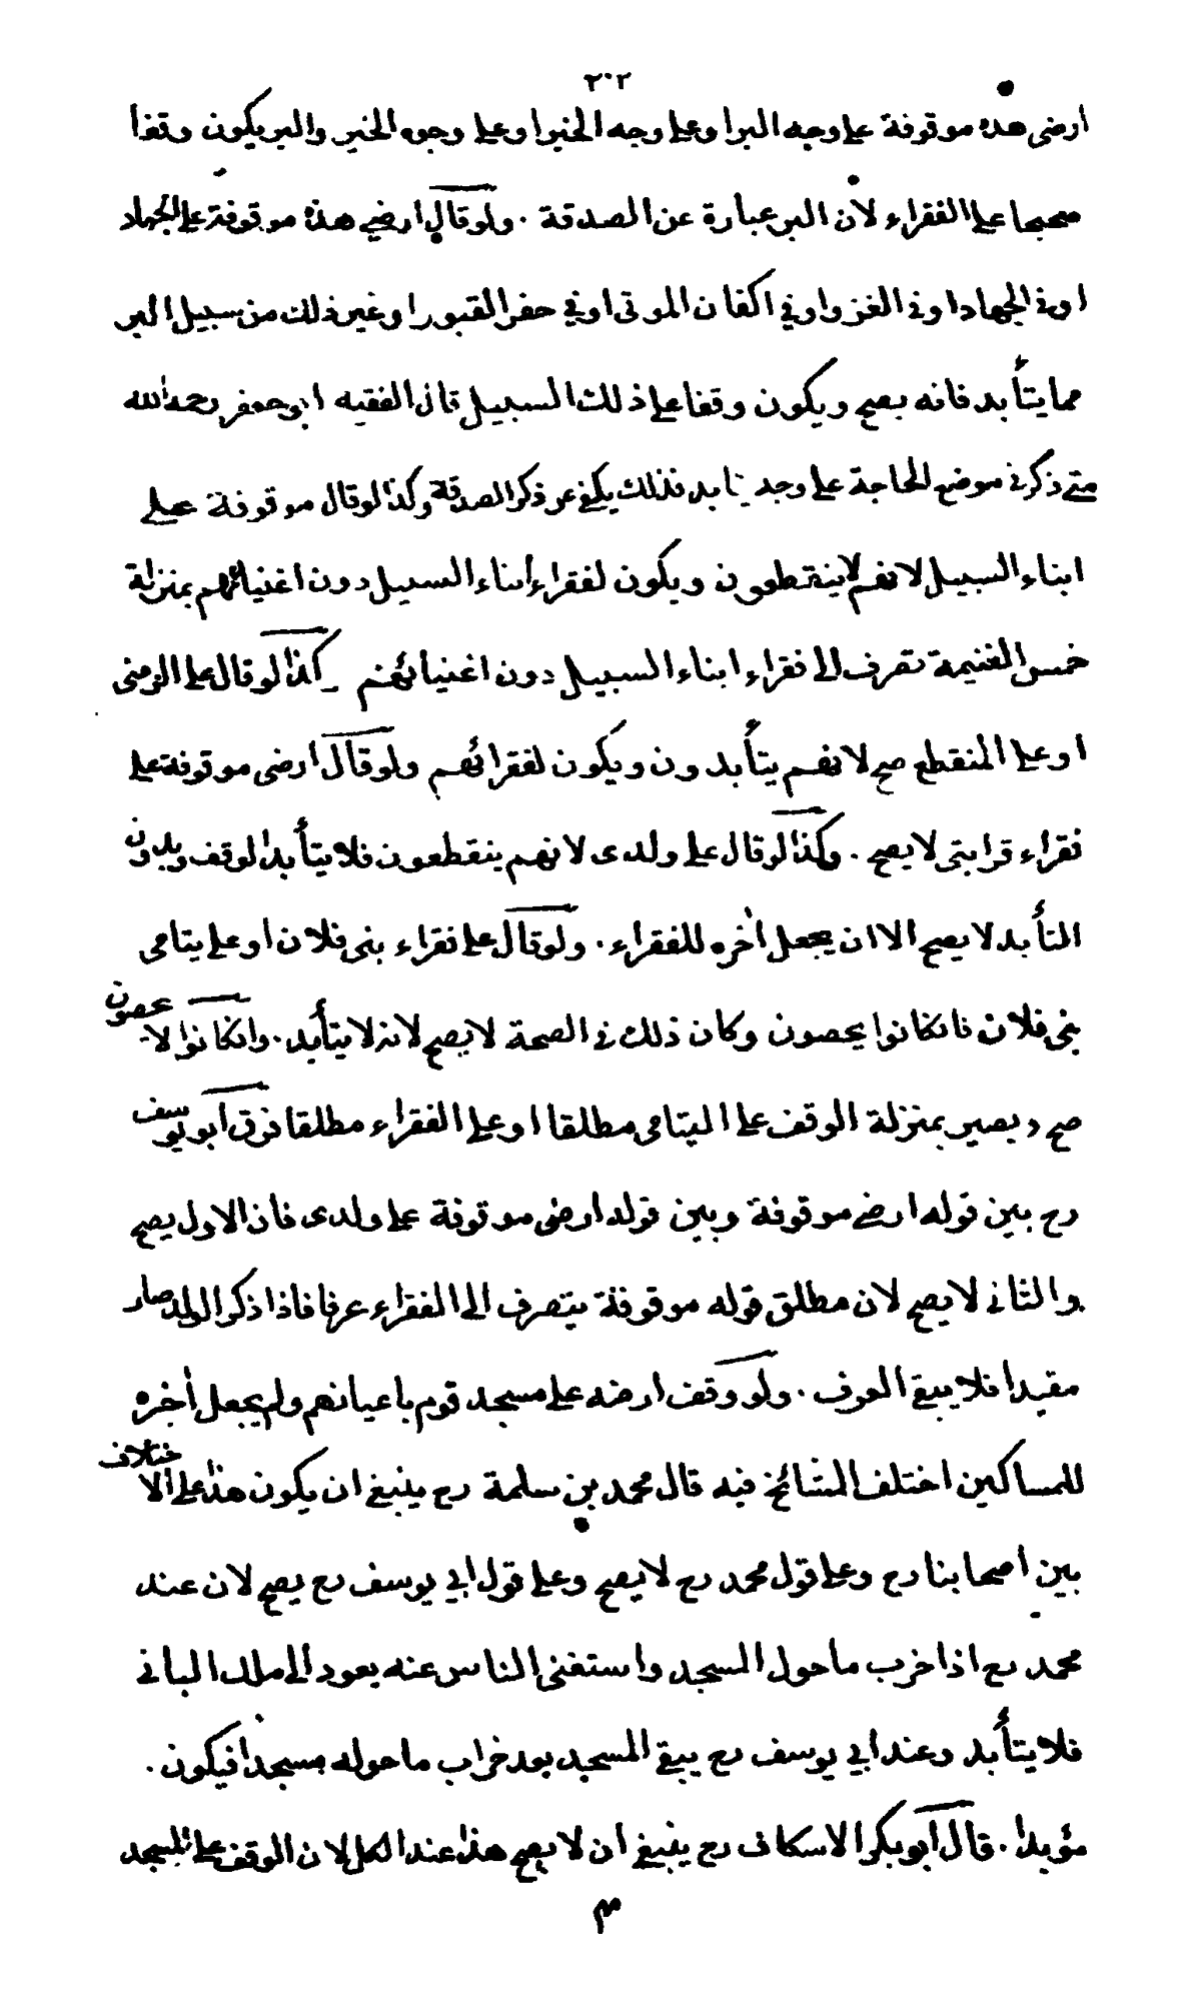 ٢٠٢
ارضى هذه موقوفة على وجه البر او على وجه الخير او على وجوه الخير والبر يكون وقفا
صحيحا على الفقراء لان البر عبارة عن الصدقة . ولو قال ارضي هذه موقوفة على الجهاد
او في الجهاد او في الغزو او في اكفان الموتى او في حفر القبور او غير ذلك من سبيل البر
مما يتأبد فانه يصح ويكون وقفا على ذلك السبيل قال الفقيه ابو جعفر رحمه الله
متى ذكر في موضع الحاجة على وجه يتابد فذلك يكفي عن ذكر الصدقة وكذا لو قال موقوفة على
ابناء السبيل لانهم لا ينقطعون ويكون لفقراء ابناء السبيل دون اغنيائهم بمنزلة
خمس الغنيمة تصرف الى فقراء ابناء السبيل دون اغنيائهم وكذا لو قال على الزمنى
او على المنقطع صح لانهم يتأبدون ويكون لفقرائهم ولو قال ارضى موقوفة على
فقراء قرابتى لا يصح . وكذا لو قال على ولدى لانهم ينقطعون فلا يتأبد الوقف وبدون
التأبد لا يصح الا ان يجعل اخره للفقراء . ولو قال على فقراء بنى فلان او على يتامى
بنى فلان فانكانوا يحصون وكان ذلك في الصحة لا يصح لانه لا يتأبد . وانكانوا لا يحصون
صح ويصير بمنزلة الوقف على اليتامى مطلقا او على الفقراء مطلقا فرق ابو يوسف
رح بين قوله ارضي موقوفة وبين قوله ارضى موقوفة على ولدى فان الاول يصح
والثانى لا يصح لان مطلق قوله موقوفة يتصرف الى الفقراء عرفا فاذا ذكر الولد صار
مقيدا فلا يبقى العرف . ولو وقف ارضه على مسجد قوم باعيانهم ولم يجعل اخره
للمساكين اختلف المشائخ فيه قال محمد بن سلمة رح ينبغي ان يكون هذا على الاختلاف
بين اصحابنا رح وعلى قول محمد رح لا يصح وعلى قول ابي يوسف رح يصح لان عند
محمد رح اذا خرب ماحول المسجد واستغنى الناس عنه يعود الى ملك البانى
فلا يتأبد وعند ابي يوسف رح يبقى المسجد بعد خراب ماحوله مسجدا فيكون .
مؤبدا . قال ابو بكر الاسكاف رح ينبغي ان لا يصح هذا عند الكل لان الوقف على المسجد